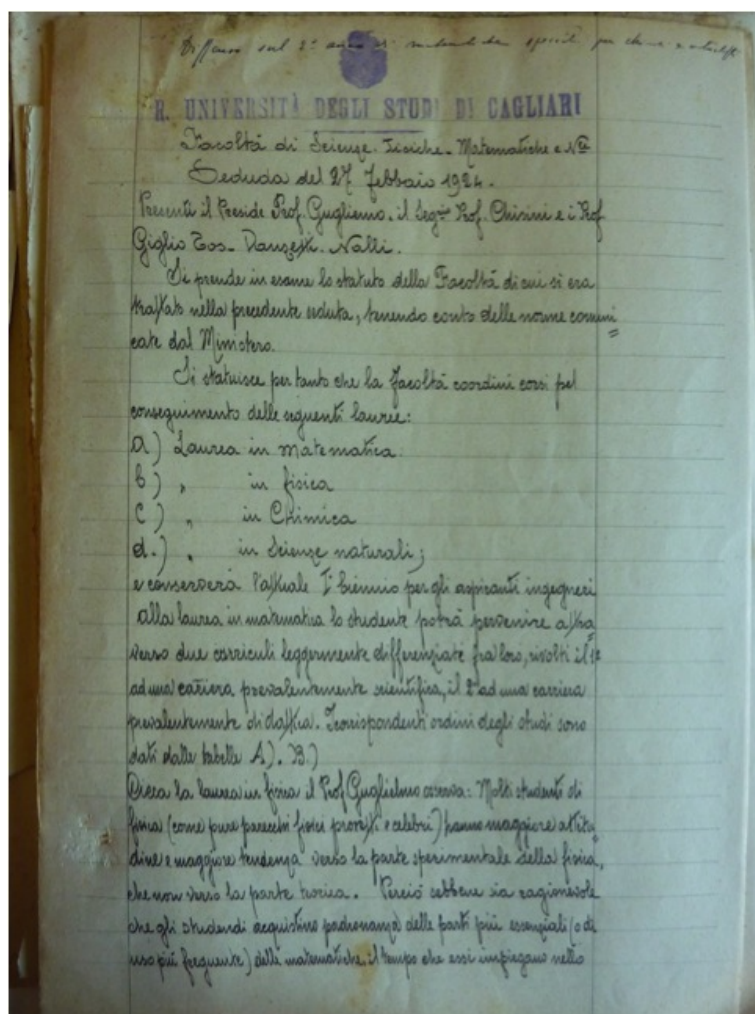 Diffuso sul 2° anno di matematiche speciali per
R. UNIVERSITÀ DEGLI STUDI DI CAGLIARI
Facoltà di Scienze. Fisiche. Matematiche e Nli
Seduda del 27 febbaio 1924.
Presenti il Preside Prof. Guglielmo. il Segrio Prof. Chisini e i Prof
Giglio Tos. Nalli.
Si prende in esame lo statuto della Facoltà di cui si era
trattato nella precedente seduta, tenendo conto delle norme comuni
cate dal Ministero.
Si statuisce per tanto che la facoltà coordini corsi pel
conseguimento delle seguenti lauree:
a) Laurea in matematica
b) " in fisica
c) " in Chimica
d.) " in Scienze naturali;
e conserverà l'attuale I° biennio per gli aspiranti ingegneri
Alla laurea in matematica lo studente potrà pervenire attra
verso due curriculi leggermente differenziati fra loro, rivolti il 1°
ad una cariera prevalentemente scientifica, il 2° ad una carriera
prevalentemente didattica. I corrispondenti ordini degli studi sono
dati dalle tabelle A). B.)
Circa la laurea in fisica il Prof Guglielmo osserva: Molti studenti di
fisica (come pure parecchi fisici provetti e celebri) hanno maggiore attitu
dine e maggiore tendenza verso la parte sperimentale della fisica,
che non verso la parte teorica. Perciò sebbene sia ragionevole
che gli studendi acquistino padronanza delle parti più essenziali (o di
uso più frequente) delle matematiche, il tempo che essi impiegano nello